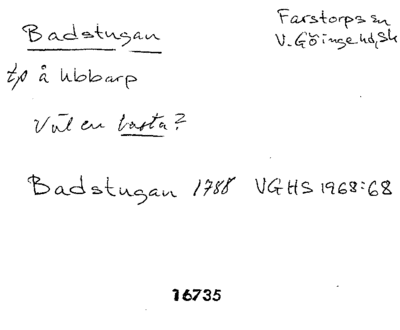 Badstugan
Farstorps sn
V. Göinge hd, Sk
tp å Ubbarp
Väl en basta?
Badstugan 1788 VGHS 1968:68
16735